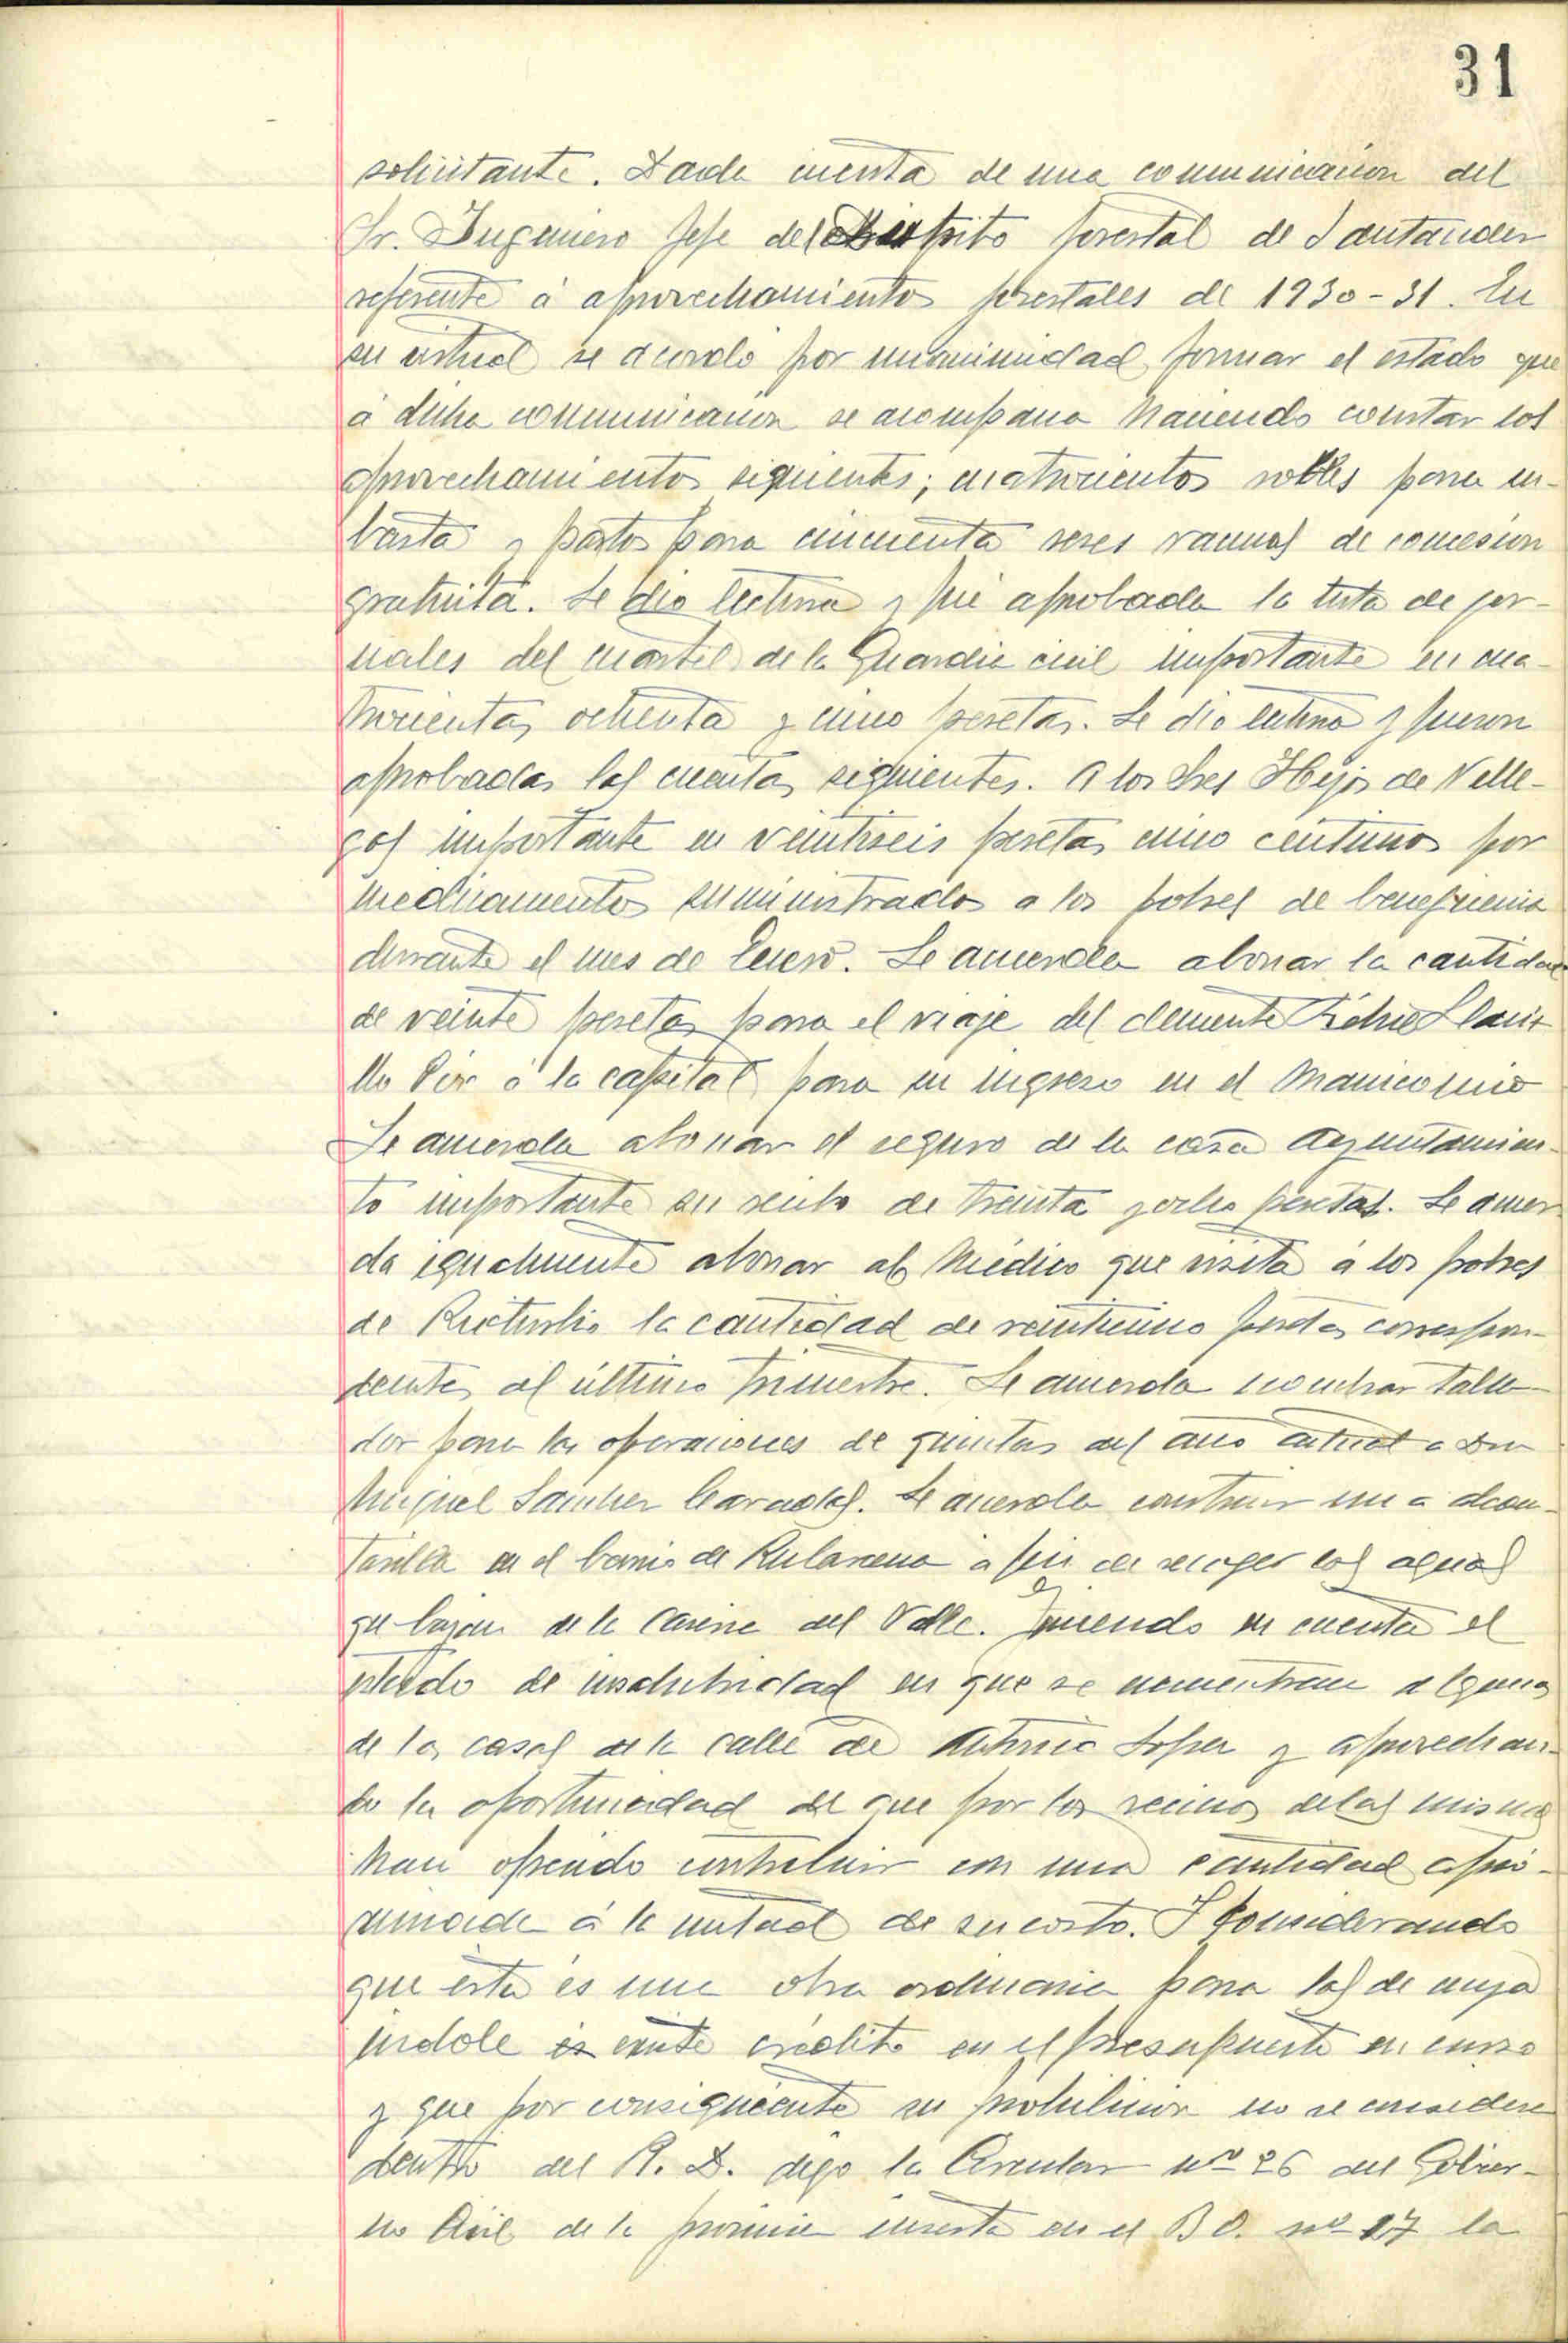 31
solicitante. Dada cuenta de una comunicacion del
Sr. Ingeniero Jefe del Distrito forestal de Santander
referente á aprovechamientos forestales de 1930-31. En
su virtud se acordó por unanimidad formar el estado que
á dicha comunicacion se acompaña haciendo constar los
aprovechamientos siguientes; cuatrocientos robles para su-
basta y pastos para cincuenta reses vacunas de concesion
gratuita. Se dio lectura y fué aprobada la lista de jor-
nales del cuartel de la Guardia civil importante en cua-
trocientas ochenta y cinco pesetas. Se dio lectura y fueron
aprobadas las cuentas siguientes. A los Sres Hijos de Ville-
gas importante en veintiseis pesetas cinco centimos por
medicamentos suministrados a los pobres de beneficencia
durante el mes de Enero. Se acuerda abonar la cantidad
de veinte pesetas para el viaje del demente
á la capital para su ingreso en el Manicomio
Se acuerda abonar el seguro de la casa Ayuntamien-
to importante su recibo de treinta y ocho pesetas. Se acuer-
da igualmente abonar al Médico que visita á los pobres
de Ruiturbio la cantidad de veinticinco pesetas correspon-
dientes al último trimestre. Se acuerda nombrar talla-
dor para las operaciones de quintas del año actual a Don
Miguel Sanchez. Se acuerda construir una alcan-
tarilla en el barrio de a fin de recoger las aguas
que bajan de la del Valle. Teniendo en cuenta el
estado de insalubridad en que se encuentran algunas
de las casas de la calle de Antonio Lopez y aprovechan-
do la oportunidad de que por los vecinos de las mismas
han ofrecido contribuir con una cantidad aproxi-
mada á la mitad de su costo. Y Considerando
que ésta es una obra ordinaria para las de cuya
indole existe crédito en el presupuesto en curso
y que por consiguiente su prohibicion no se considera
dentro del R. D. digo la Circular nº 26 del Gobier-
no Civil de la provincia inserta en el B O. nº 17 la